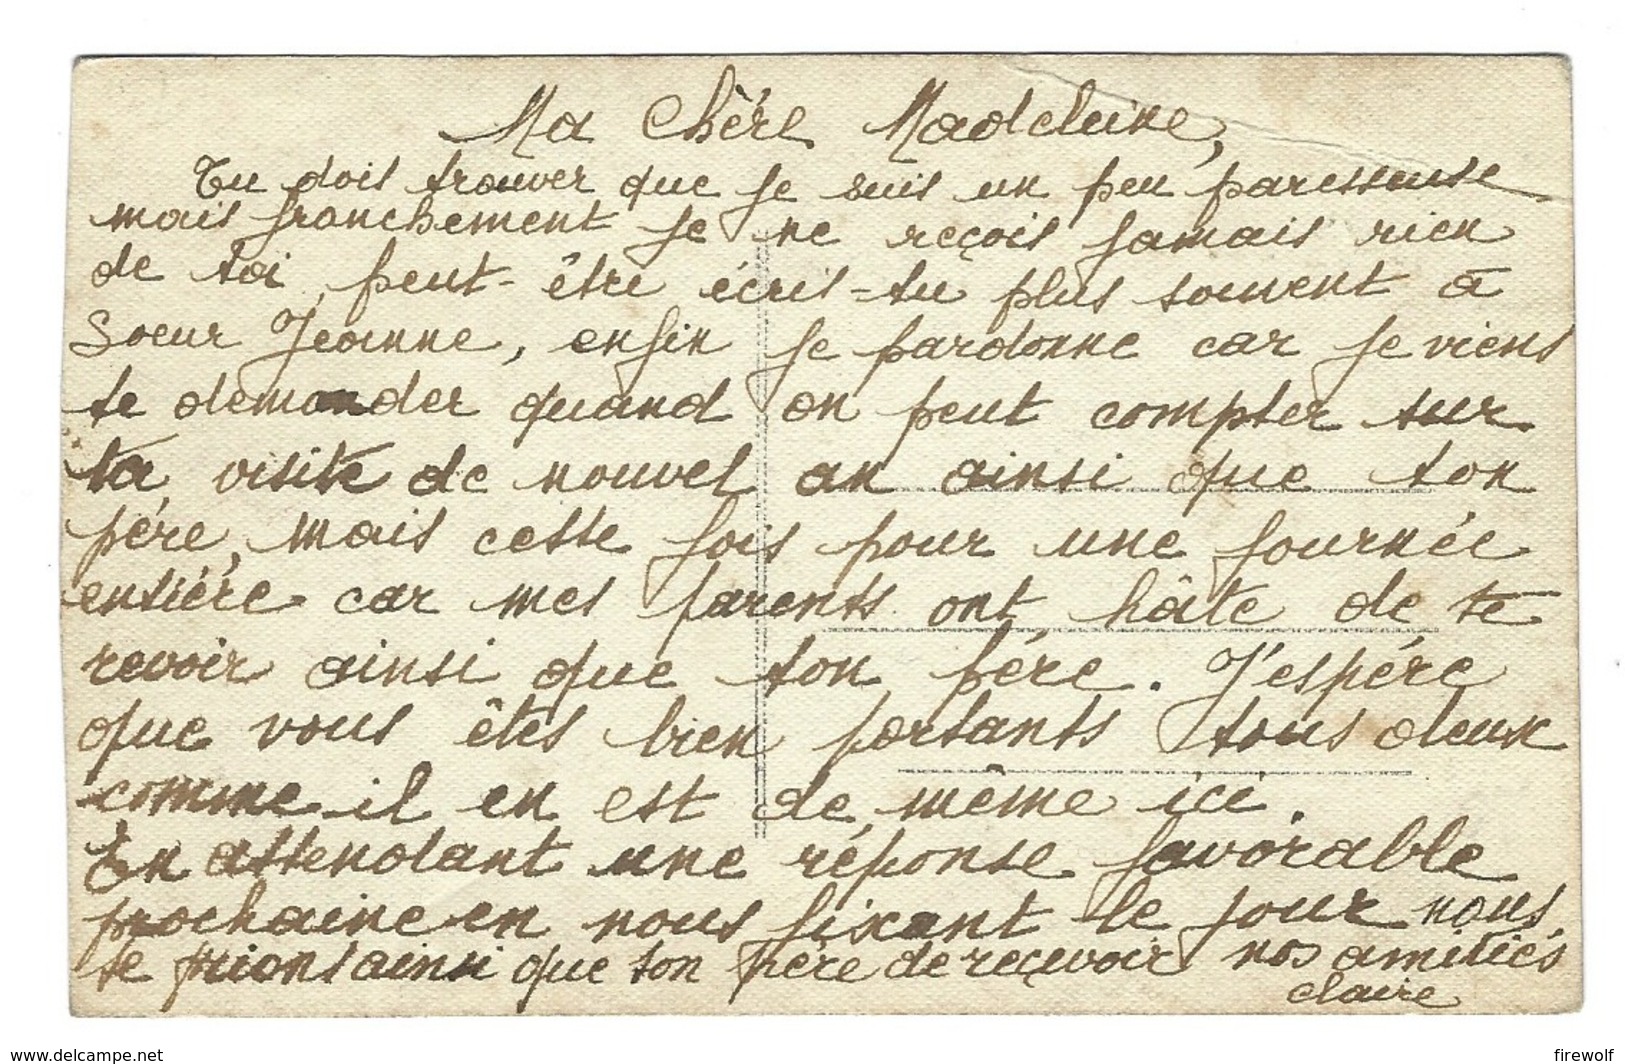 Ma Chère Madeleine,
Tu dois trouver que je suis un peu paresseuse
mais franchement je ne reçois jamais rien
de toi, peut-être écris-tu plus souvent à
Soeur Jeanne, enfin je pardonne car je viens
te demander quand on peut compter sur
ta visite de nouvel an ainsi que ton
père, mais cette fois pour une journée
entière car mes parents ont hâte de te
revoir ainsi que ton père. J'espére
que vous êtes bien portants tous deux
comme il en est de même ici.
En attendant une réponse favorable
prochaine en nous fixant le jour nous
te prions ainsi que ton père de reçevoir nos amitiés
Claire
www.delcampe.net
firewolf